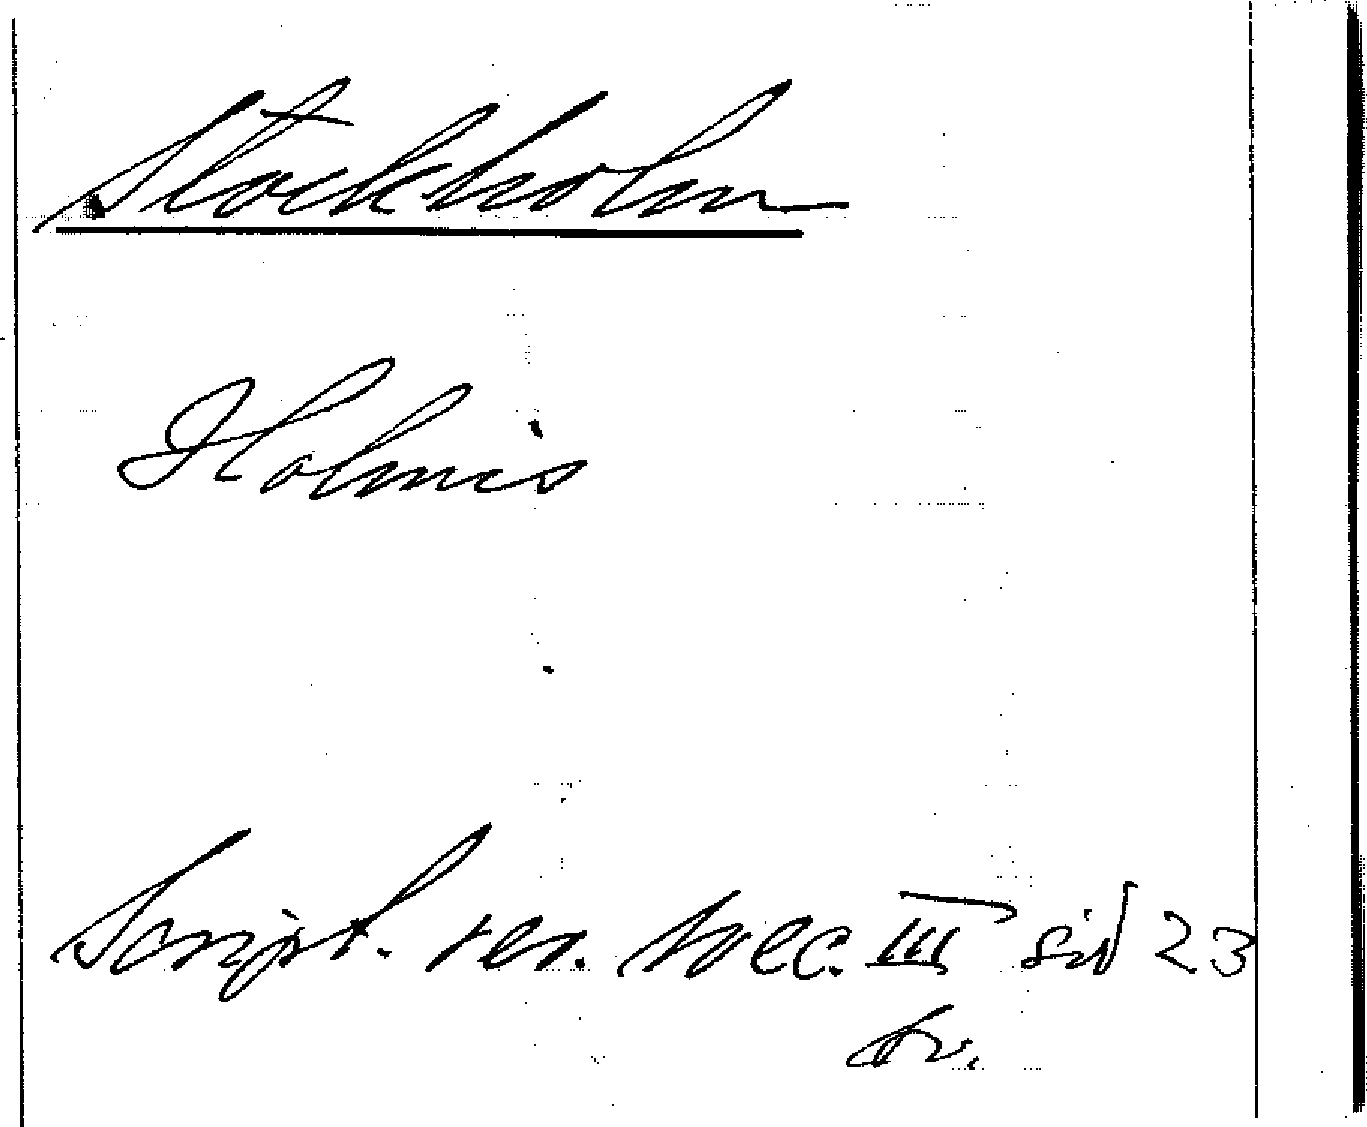 Stockholm
Holmis
Script. rer. svec. III sid 23